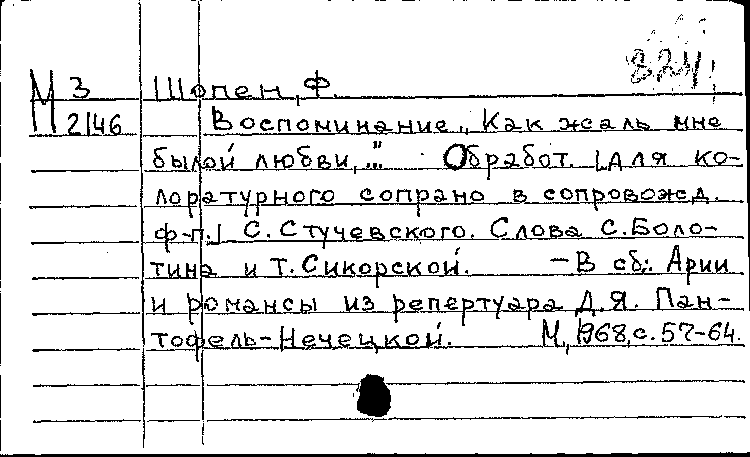 824
М 3 Шопен, Ф.
2146 Воспоминание „Как жаль мне
былой любви,..." Обработ. [для ко-
лоратурного сопрано в сопровожд.
ф-п.] С. Стучевского. Слова С. Боло-
тина и Т. Сикорской. — В сб.: Арии
и романсы из репертуара Д.Я. Пан-
тофель-Нечецкой. М., 1968, с. 57-64.